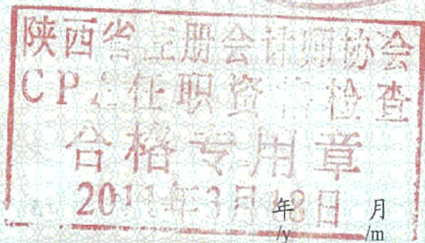 陕西省注册会计师协会
CPA任职资格检查
合格专用章
2011年3月18日
年 月
/y /m